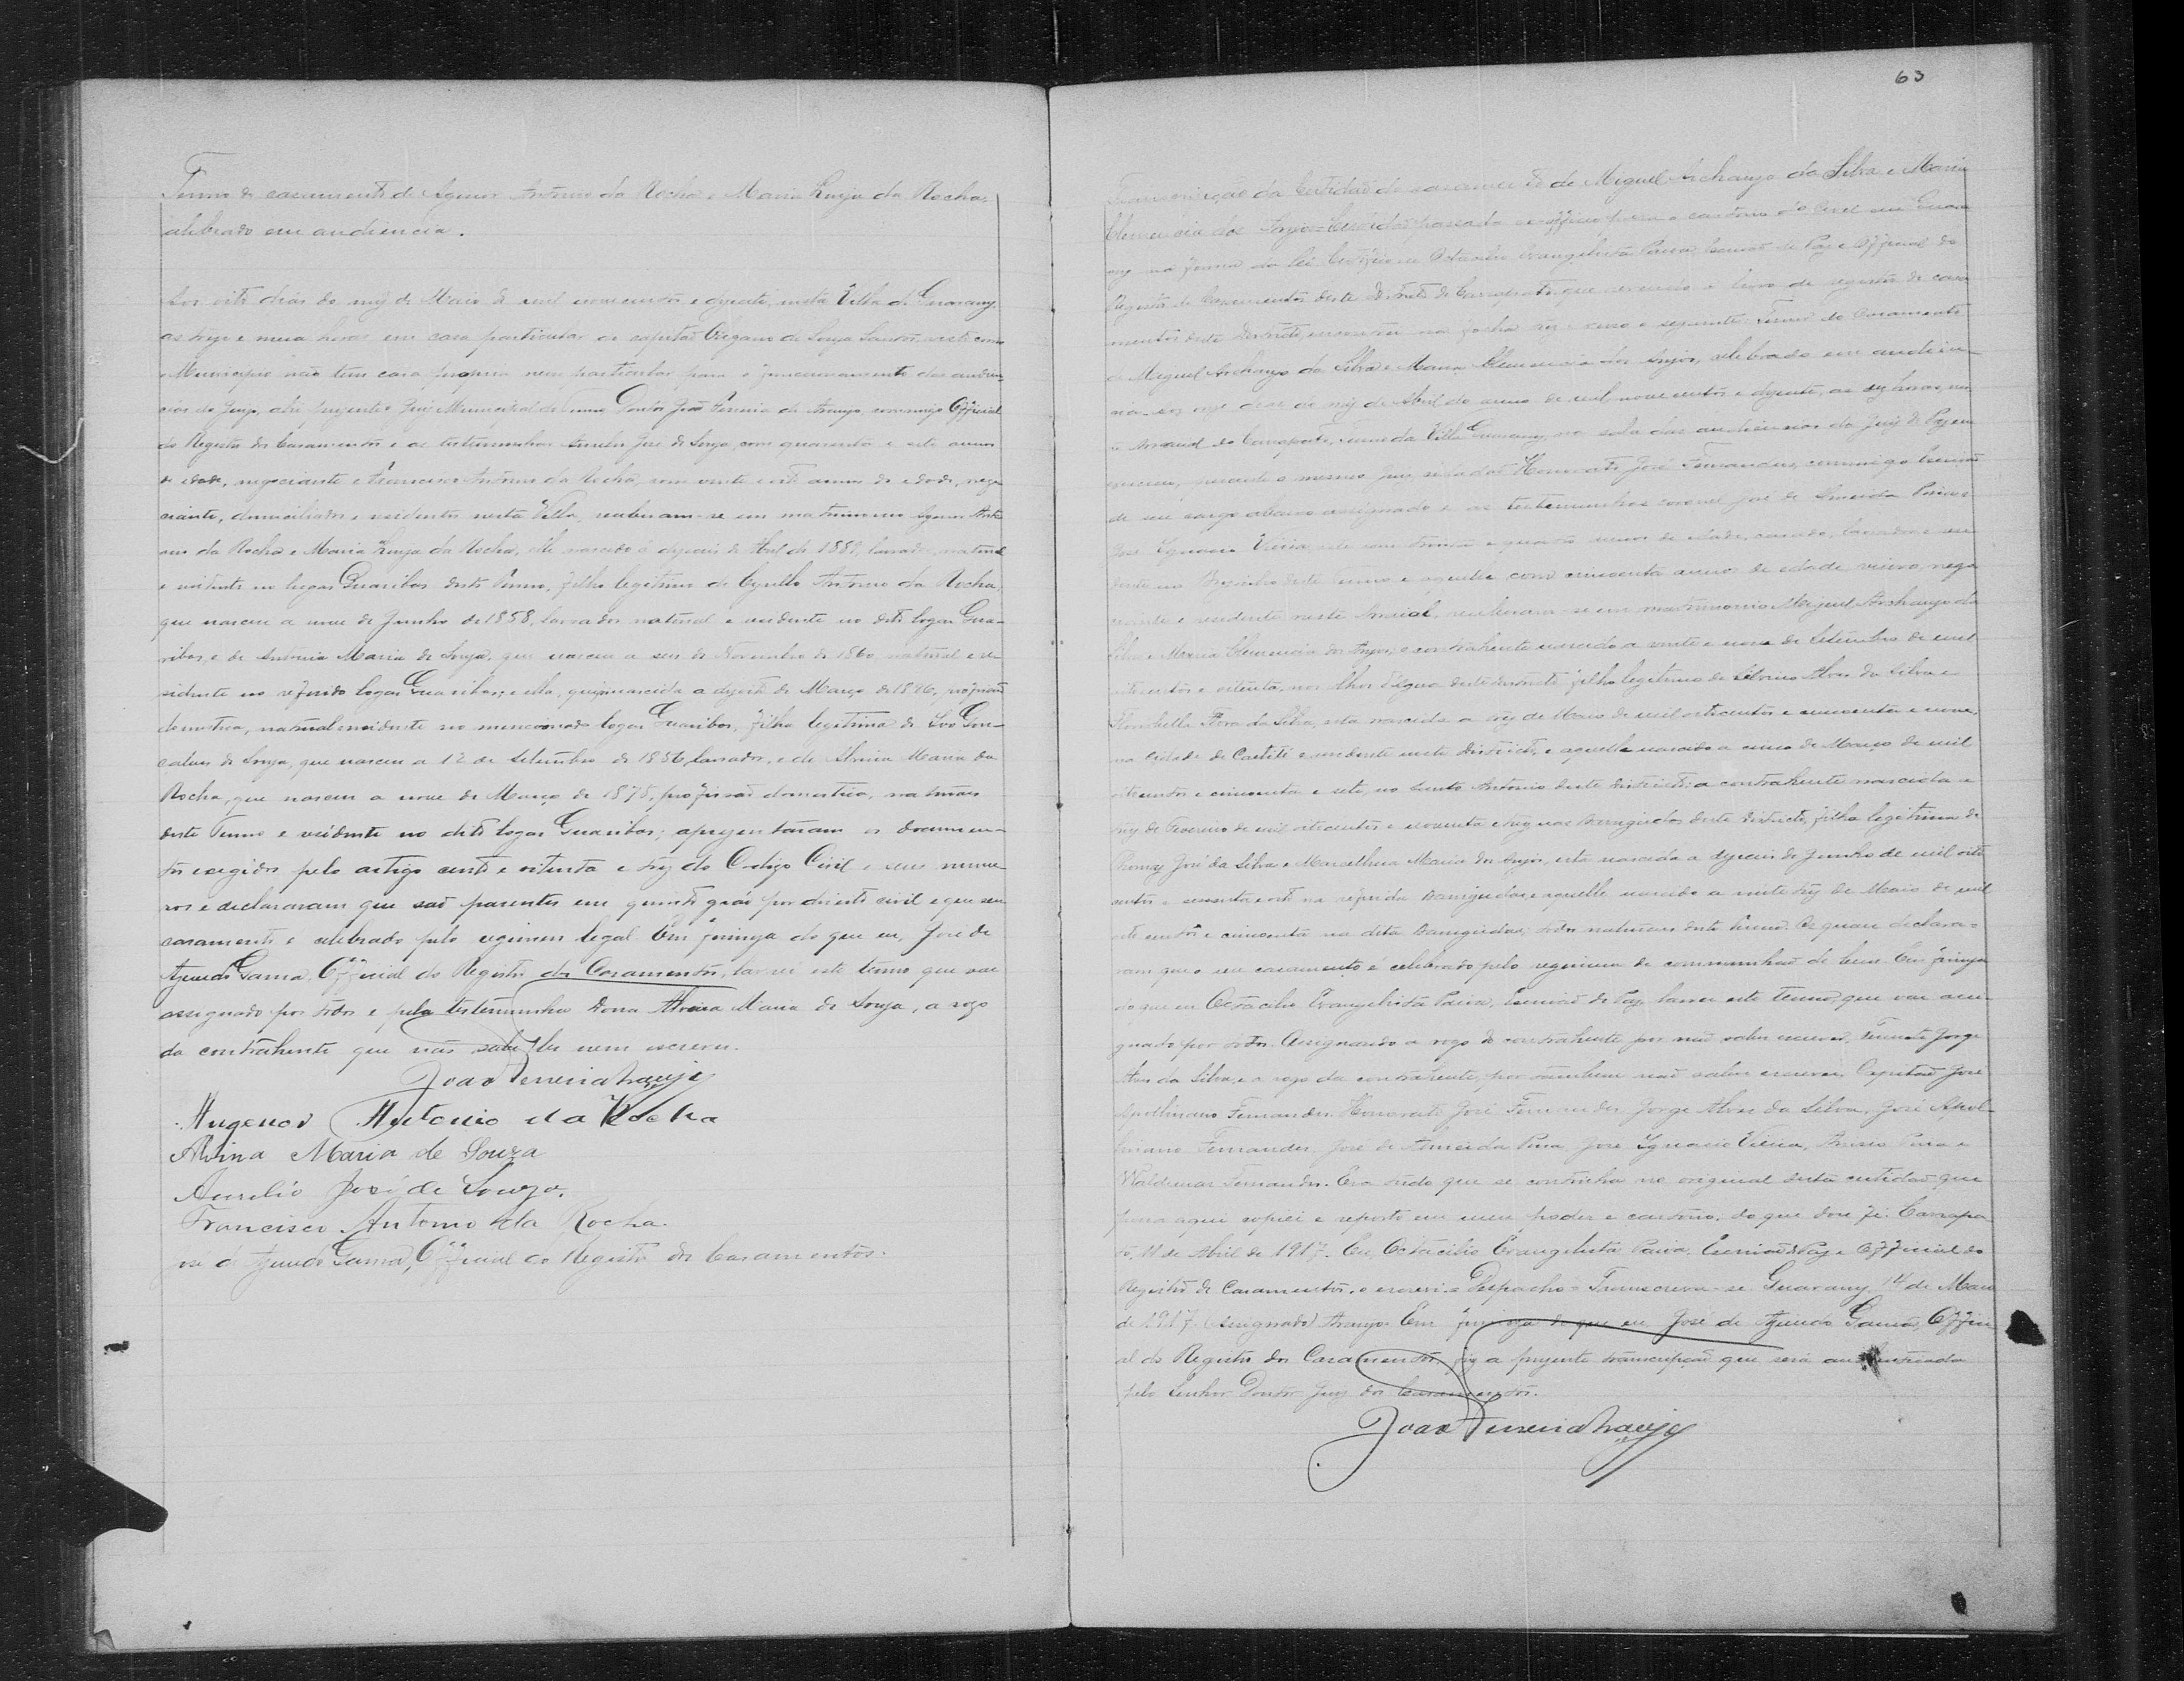 Termo de casamento de Agenor Antonio da Rocha e Maria Luzia da Rocha,
celebrado em audiencia.
Aos oito dias do mez de Maio de mil novecentos e dezesete, nesta Villa de Guarany,
as treze e meia horas em casa particular do capitão de Souza Santos, visto como
o Municipio não tem casa propria nem particular para o funccionamento das audien-
cias do Juizo, ahi presente o Juiz Municipal do Termo Doutor João Pereira de Araujo, commigo Official
do Registro dos Casamentos e as testemunhas Aurelio José de Souza, com quarenta e sete annos
de edade, negociante e Francisco Antonio da Rocha, com vinte e oito annos de edade, nego-
ciante, domiciliados e residentes nesta Villa, receberam-se em matrimonio Agenor Anto-
nio da Rocha e Maria Luzia da Rocha, elle nascido a dezeseis de Abril de 1889, lavrador, natural
e residente no lugar Guaribas deste Termo, filho legitimo de Cyrillo Antonio da Rocha,
que nasceu a nove de Junho de 1858, lavrador natural e residente no dito logar Gua-
ribas, e de Antonia Maria de Souza, que nasceu a seis de Novembro de 1860, natural e re-
sidente no referido logar Guaribas; e ella, nascida a dezoito de Março de 1896, profissão
domestica, natural e residente no mencionado logar Guaribas, filha legitima de Gon-
calves de Souza, que nasceu a 12 de Setembro de 1856, lavrador, e de Maria da
Rocha, que nasceu a nove de Março de 1878, profissão domestica, naturaes
deste Termo e residente no dito logar Guaribas; apresentaram os documen-
tos exigidos pelo artigo cento e oitenta e trez do Codigo Civil e seus nume-
ros e declararam que são parentes em quarto gráo por direito civil e que seu
casamento é celebrado pelo regimen legal. Em firmeza do que eu, José de
Azevedo Gama, Official do Registro dos Casamentos, lavrei este termo que vae
assignado por todos e pela testemunha Dona Alvina Maria de Souza, a rogo
da contrahente que não sabe ler nem escrever.
João Pereira Araujo
Augenor Antonio da Rocha
Alvina Maria de Souza
Aurelio José de Souza.
Francisco Antonio da Rocha.
José de Azevedo Gama, Official do Registro dos Casamentos.
63
Transcripção da Certidão de casamento de Miguel Archanjo da Silva e Maria
Clemencia dos Anjos = Certidão passada ex-officio para o cartorio do Civel em Guara-
ny na forma da lei. Certifico eu Octacilio Evangelista Paiva, Escrivão de Paz e Official do
Registro de Casamentos deste Districto de Carrapato, que revendo o livro de registro de casa-
mentos deste Districto, encontrei na folha o seguinte: Termo de Casamento
de Miguel Archanjo da Silva e Maria Clemencia dos Anjos, celebrado em audien-
cia. Aos onze dias do mez de Abril do anno de mil novecentos e dezesete, as dez horas,
o Arraial do Carrapato, Termo da Villa Guarany, na sala das audiencias do Juiz de Paz em
exercicio, perante o mesmo Juiz cidadão Honorato José Fernandes, commigo Escrivão
de seu cargo abaixo assignado e as testemunhas coronel José de Almeida Paiva e
José Ignacio Vieira, este com trinta e quatro annos de edade, casado, lavrador e resi-
dente no deste Termo e aquelle com cincoenta annos de edade viuvo, nego-
ciante e residente neste Arraial, receberam-se em matrimonio Miguel Archanjo da
Silva e Maria Clemencia dos Anjos; o contrahente nascido a vinte e nove de Setembro de mil
oitocentos e oitenta, nos Olhos d'Agua deste districto filho legitimo de Silvino Alves da Silva e
Flora da Silva, esta nascida a trez de Maio de mil oitocentos e cincoenta e nove,
na Cidade de Caetité e residente neste Districto, e aquelle nascido a cinco de Março de mil
oitocentos e cincoenta e sete, no Santo Antonio deste Districto; a contrahente nascida a
trez de Fevereiro de mil oitocentos e noventa e trez nas Barrigudas deste Districto, filha legitima de
José da Silva e Marcellina Maria dos Anjos, esta nascida a dezeseis de Junho de mil oito-
centos e sessenta e oito na referida Barrigudas, e aquelle nascido a vinte trez de Maio de mil
oitocentos e cincoenta na dita Barrigudas; todos naturaes deste Termo. Os quaes declara-
ram que o seu casamento é celebrado pelo regimen de communhão de bens. Em firmeza
do que eu Octacilio Evangelista Paiva, Escrivão de Paz, lavrei este termo, que vae assi-
gnado por todos. Assignando a rogo do contrahente por não saber escrever, Tenente Jorge
Alves da Silva, e a rogo da contrahente, por tambem não saber escrever, Capitão José
Apollinario Fernandes. Honorato José Fernandes, Jorge Alves da Silva, José Apol-
linario Fernandes, José de Almeida Paiva, José Ignacio Vieira, Paiva e
Waldemar Fernandes. Era tudo que se continha no original desta certidão que
para aqui copiei e reporto em meu poder e cartorio; do que dou fé. Carrapa-
to, 11 de Abril de 1917. Eu, Octacilio Evangelista Paiva, Escrivão de Paz e Official do
Registro de Casamentos, o escrevi = Despacho = Transcreva-se. Guarany, 14 de Maio
de 1917. (Assignado) Araujo. Em firmeza do que eu José de Azevedo Gama, Offici-
al do Registro dos Casamentos, fiz a presente transcripção que será authenticada
pelo Senhor Doutor Juiz dos Casamentos.
João Pereira Araujo